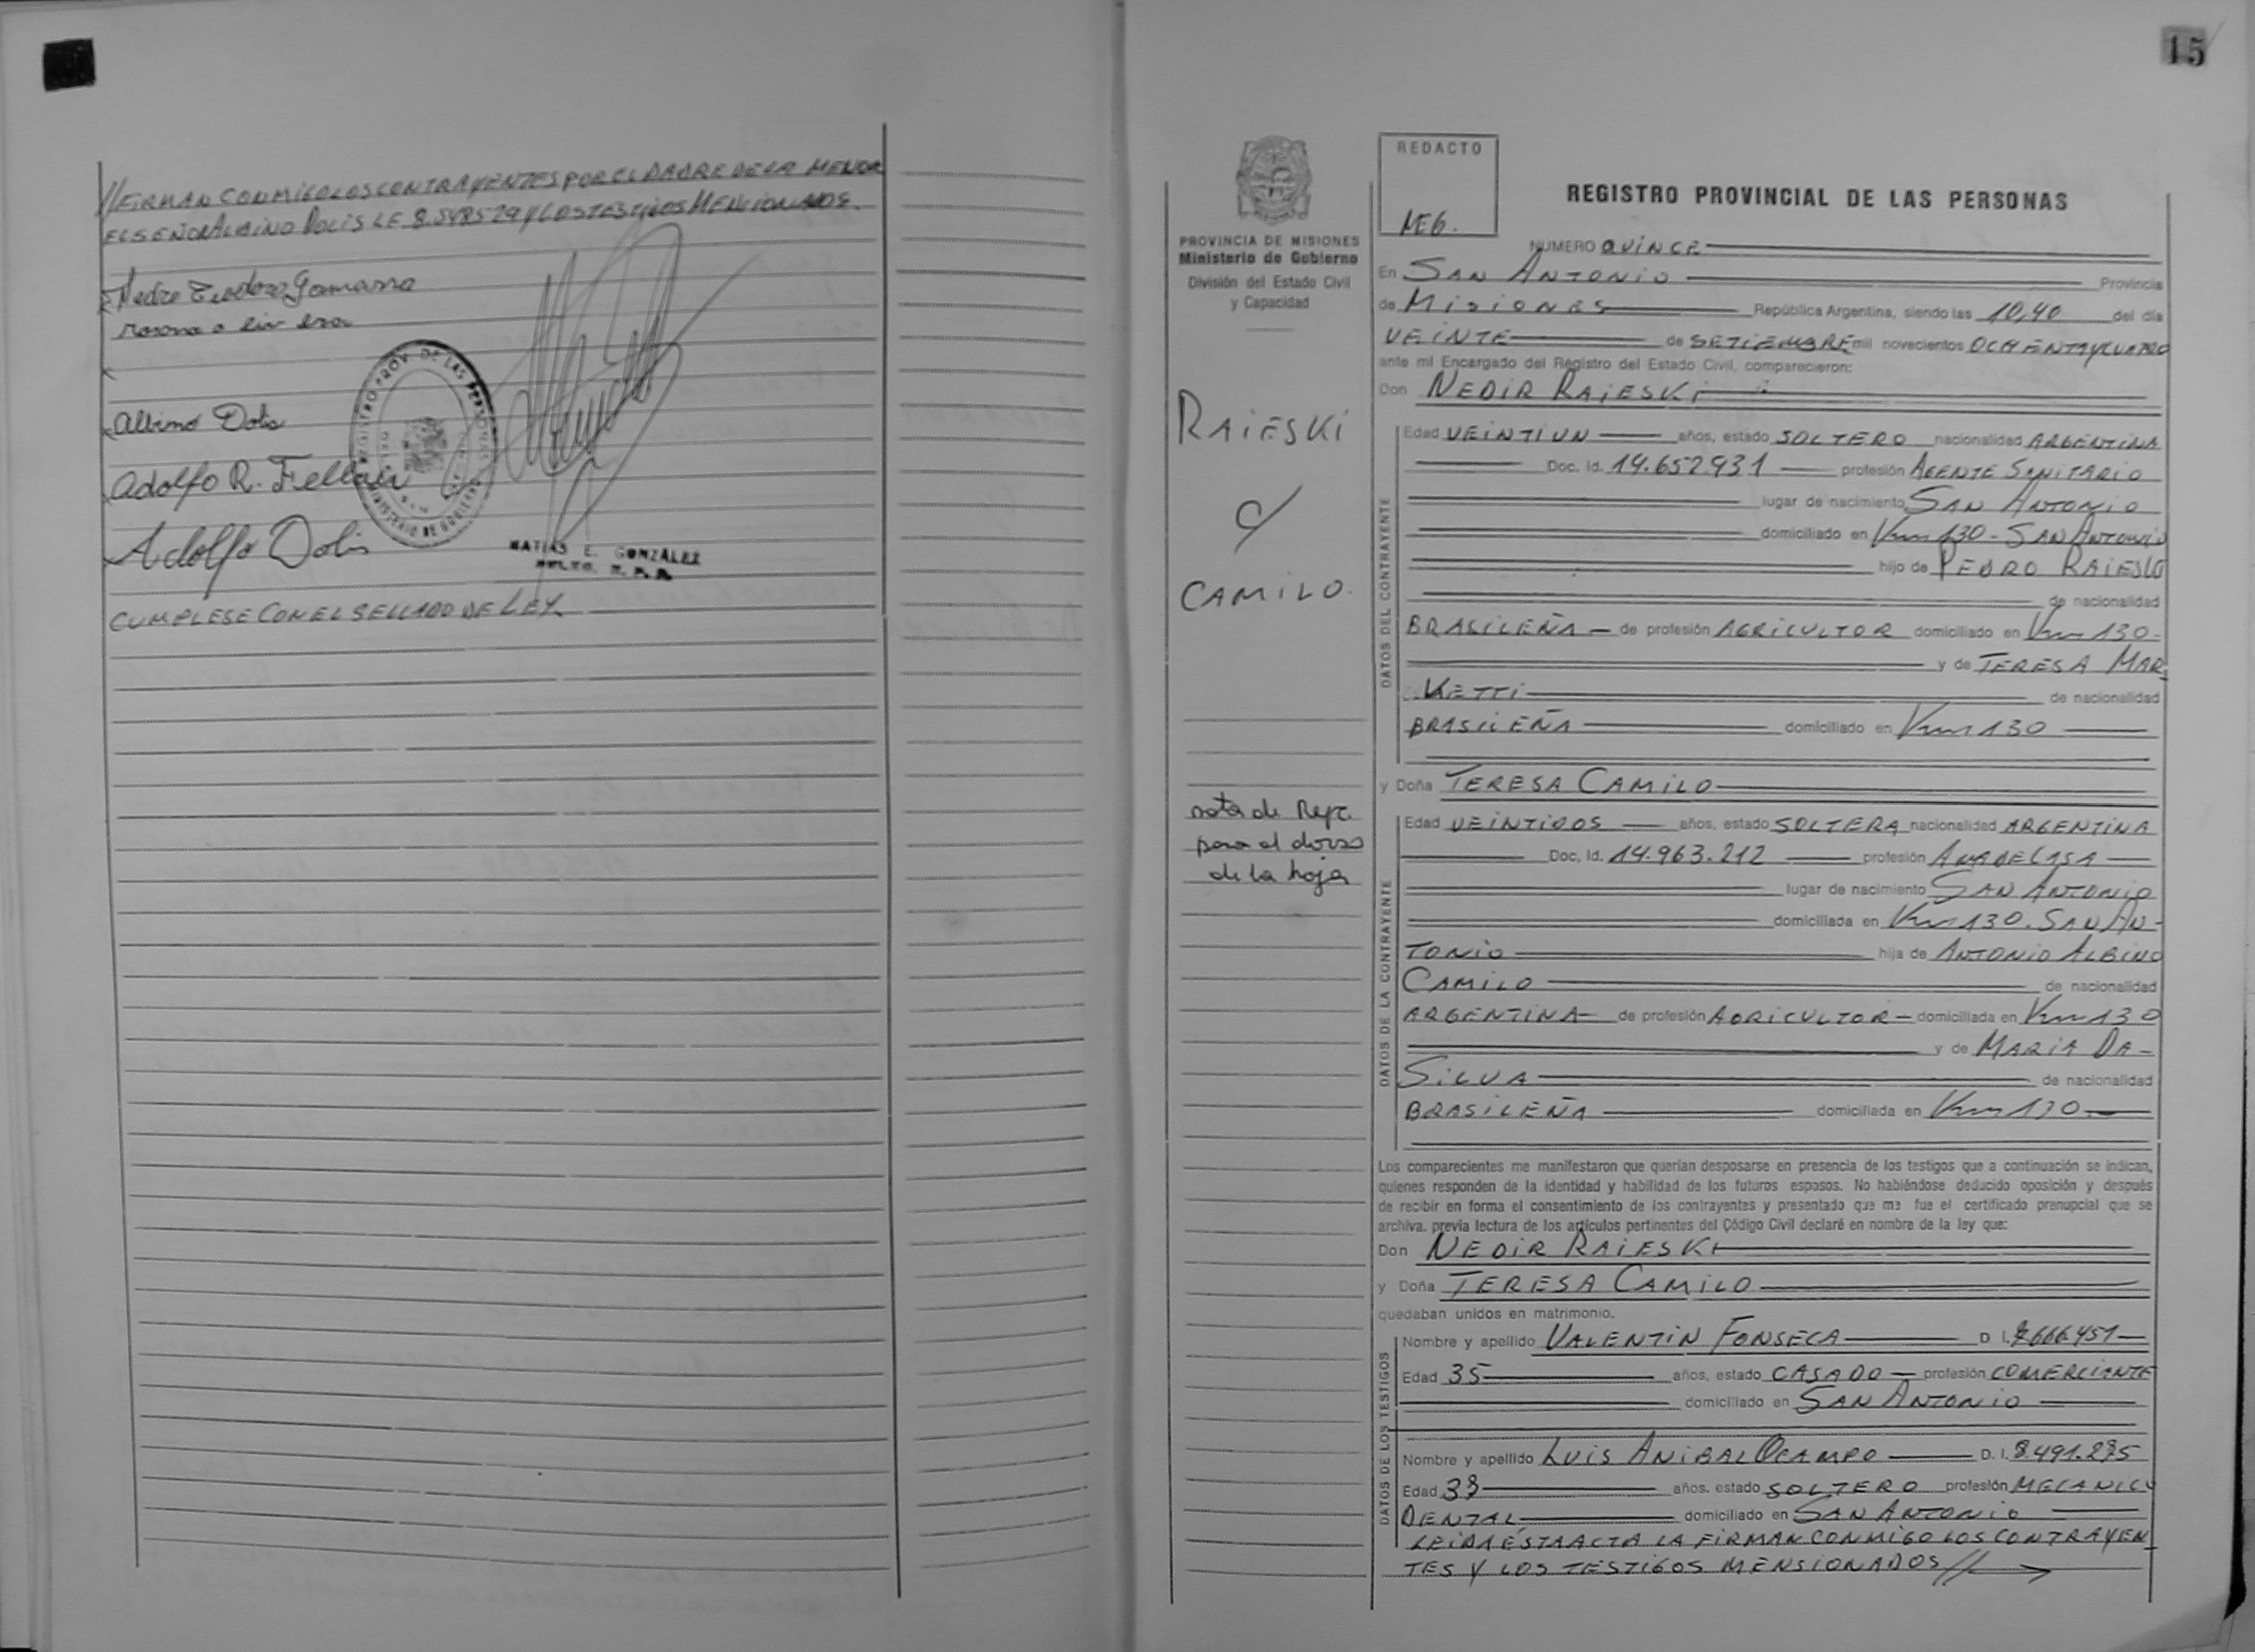 //FIRMAN CONMIGO LOS CONTRAYENTES POR EL PADRE DE LA MENOR
EL SEÑOR ALBINO DOLIS LE 8.548529 Y LOS TESTIGOS MENCIONADOS.
Pedro Teodoro Gamarra
Albino Dolis
Adolfo R.
Adolfo Dolis
REGISTRO PROV. DE LAS PERSONAS
MINISTERIO DE GOBIERNO
MATIAS E. GONZALEZ
CUMPLESE CON EL SELLADO DE LEY
15
PROVINCIA DE MISIONES
Ministerio de Gobierno
División del Estado Civil
y Capacidad
RAIESKI
c/
CAMILO.
nota de Refc.
para al dorso
de la hoja
REDACTO
MEG.
REGISTRO PROVINCIAL DE LAS PERSONAS
NUMERO QUINCE
En SAN ANTONIO Provincia
de MISIONES República Argentina, siendo las 10,40 del día
VEINTE de SETIEMBRE mil novecientos OCHENTAYCUATRO
ante mi Encargado del Registro del Estado Civil, comparecieron:
Don NEDIR RAIESKI
DATOS DEL CONTRAYENTE
Edad VEINTIUN años, estado SOLTERO nacionalidad ARGENTINA
Doc. Id. 14.652931 profesión AGENTE SANITARIO
lugar de nacimiento SAN ANTONIO
domiciliado en Km 130 - SAN ANTONIO
hijo de PEDRO RAIESKI
de nacionalidad
BRASILEÑA - de profesión AGRICULTOR domiciliado en Km 130-
y de TERESA MAR
KETTI de nacionalidad
BRASILEÑA domiciliado en Km 130
y Doña TERESA CAMILO
DATOS DE LA CONTRAYENTE
Edad VEINTIDOS años, estado SOLTERA nacionalidad ARGENTINA
Doc. Id. 14.963.212 profesión AMA DE CASA
lugar de nacimiento SAN ANTONIO
domiciliada en Km 130. SAN AN-
TONIO hija de ANTONIO ALBINO
CAMILO de nacionalidad
ARGENTINA de profesión AGRICULTOR - domiciliada en Km 130
y de MARIA DA-
SILVA de nacionalidad
BRASILEÑA domiciliada en Km 130
Los comparecientes me manifestaron que querían desposarse en presencia de los testigos que a continuación se indican,
quienes responden de la identidad y habilidad de los futuros esposos. No habiéndose deducido oposición y después
de recibir en forma el consentimiento de los contrayentes y presentado que me fue el certificado prenupcial que se
archiva, previa lectura de los artículos pertinentes del Código Civil declaré en nombre de la ley que:
Don NEDIR RAIESKI
y Doña TERESA CAMILO
quedaban unidos en matrimonio.
DATOS DE LOS TESTIGOS
Nombre y apellido VALENTIN FONSECA D. I.
Edad 35 años, estado CASADO - profesión COMERCIANTE
domiciliado en SAN ANTONIO
Nombre y apellido LUIS ANIBAL OCAMPO D. I. 8.491.235
Edad 33 años, estado SOLTERO profesión MECANICO
DENTAL domiciliado en SAN ANTONIO
LEIDA ESTA ACTA LA FIRMAN CONMIGO LOS CONTRAYEN
TES Y LOS TESTIGOS MENSIONADOS //